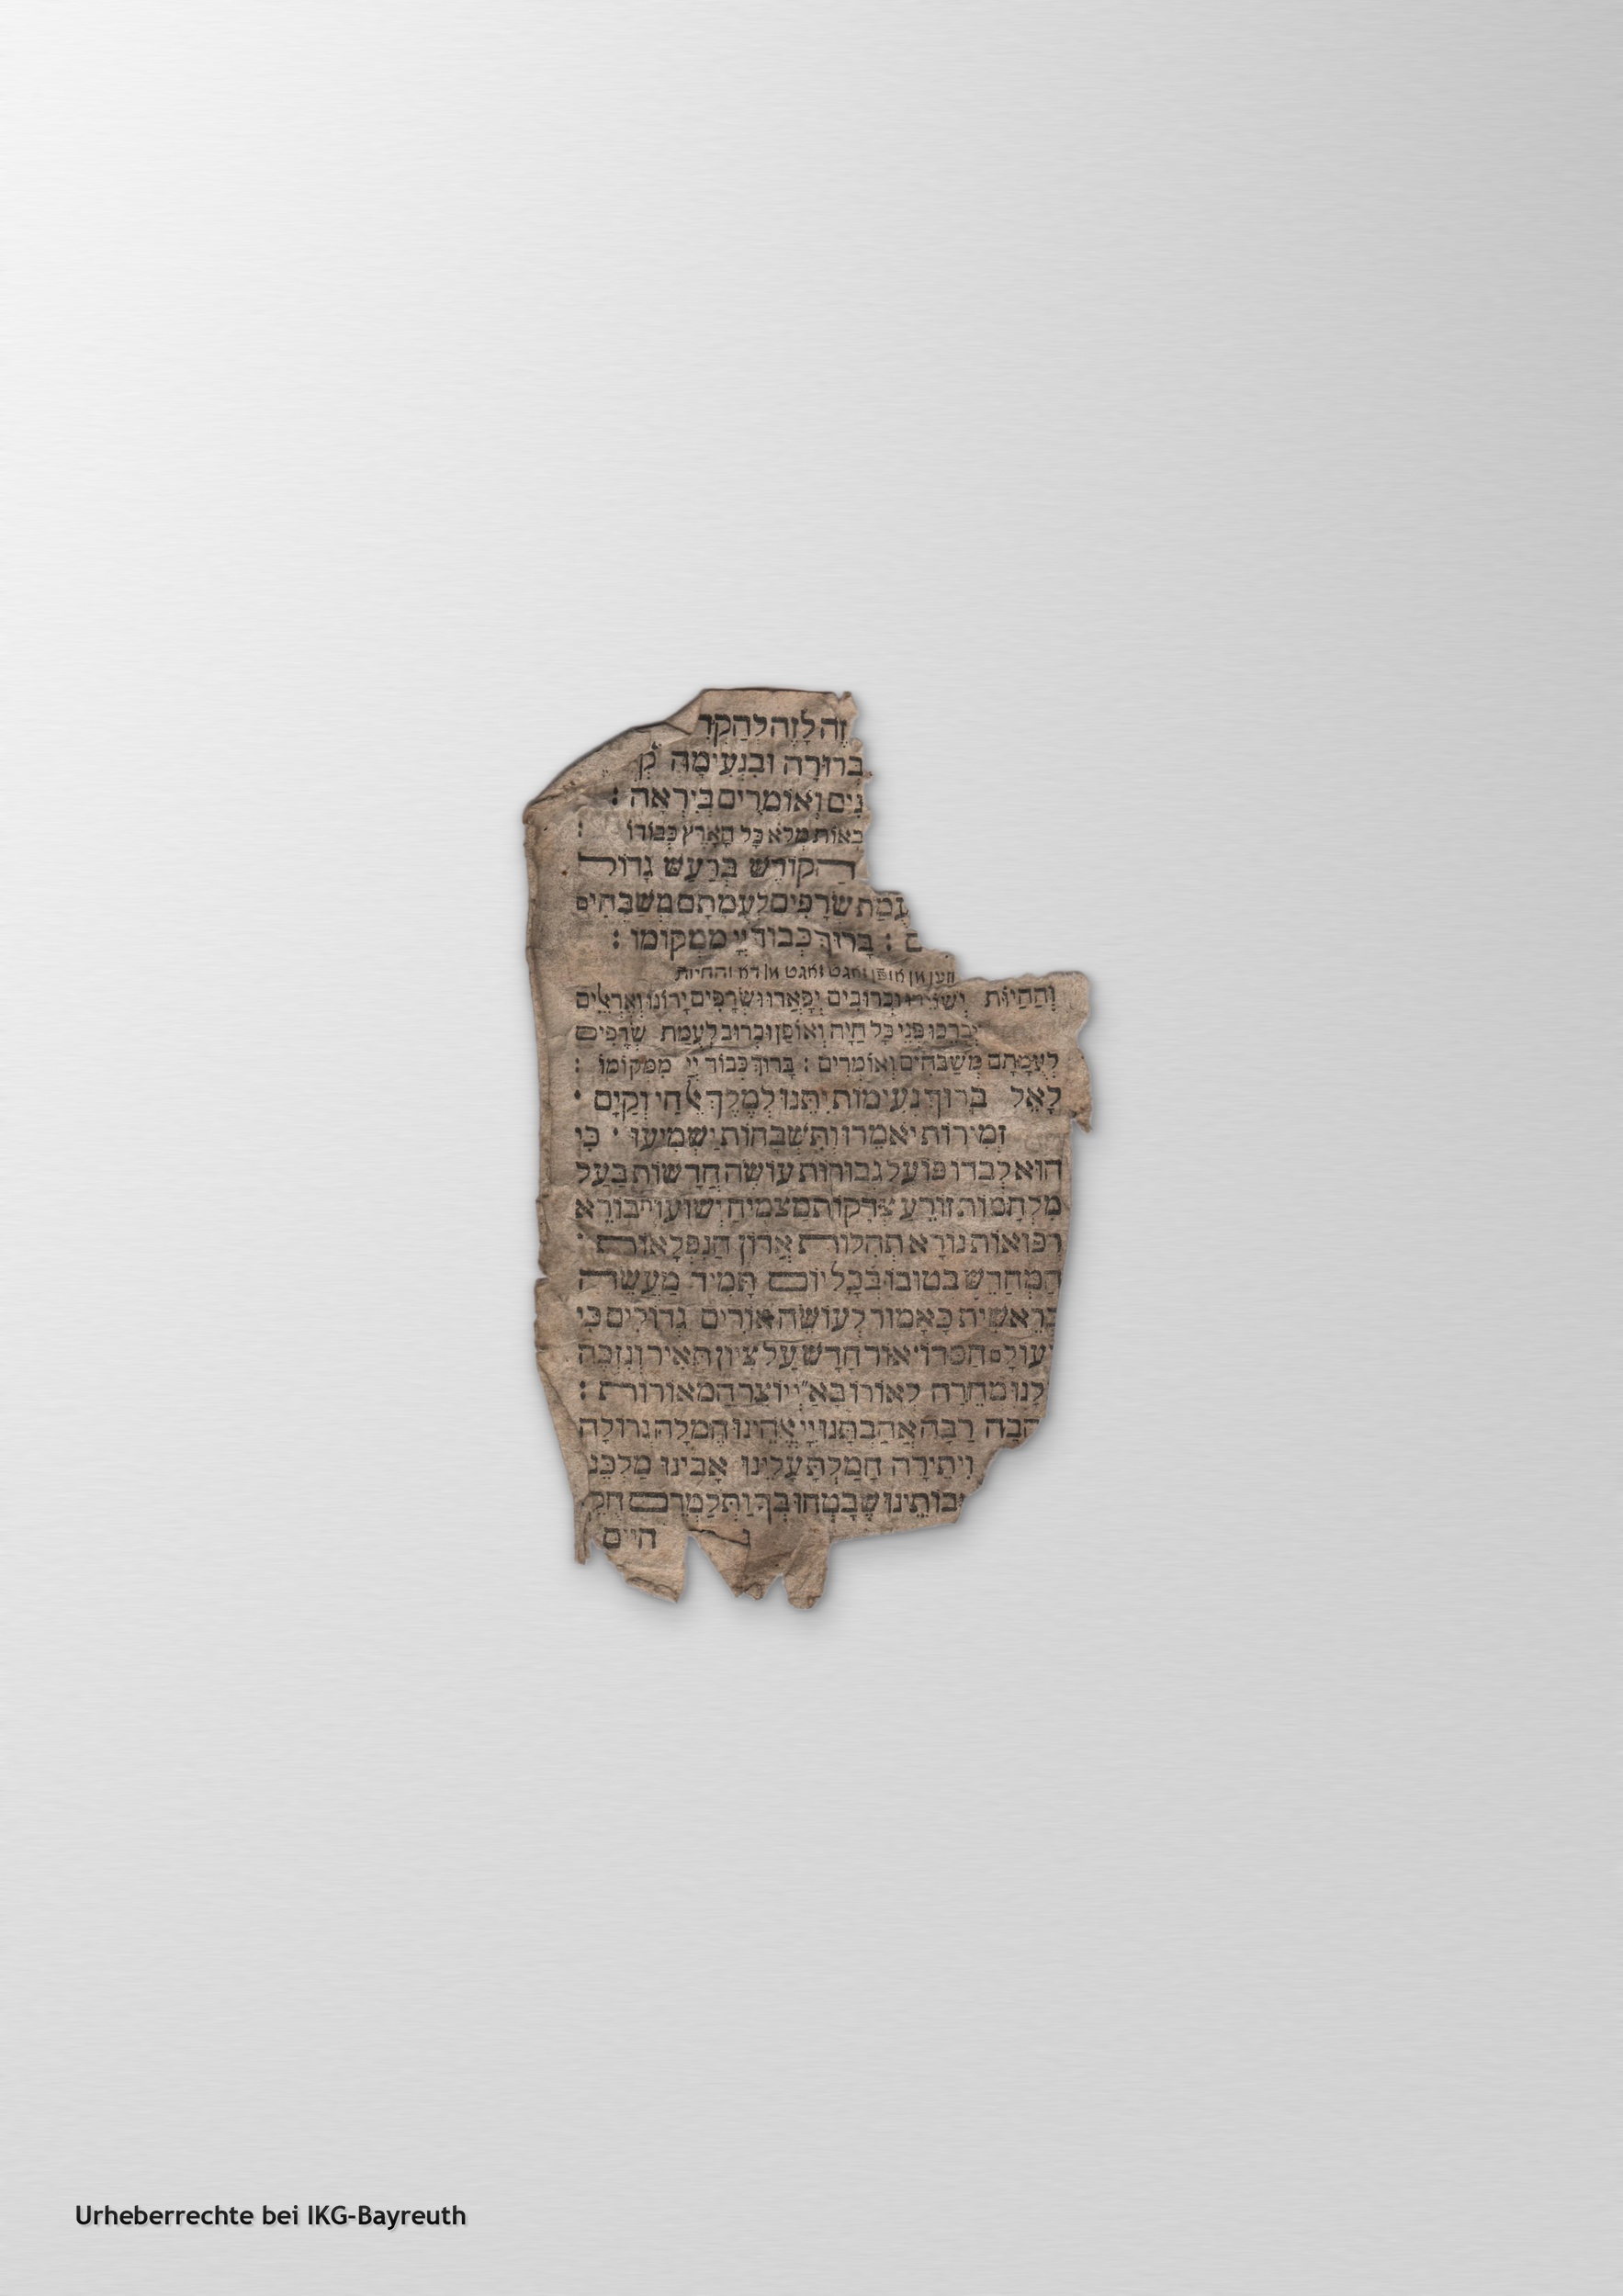 זֶה לָזֶה לְהַקְדִּ
בְרוּרָה וּבִנְעִימָה ק
נִים וְאוֹמְרִים בְּיִרְאָה :
בָאוֹת מְלֹא כָל הָאָרֶץ כְּבוֹדוֹ :
הַקּוֹדֶשׁ בְּרַעַשׁ גָּדוֹל
עֻמַּת שְׂרָפִים לְעֻמָּתָם מְשַׁבְּחִים
ם : בָּרוּךְ כְּבוֹד יְיָ מִמְּקוֹמוֹ :
מען אן אופן זאגט זאגט אן דא והחיות
וְהַחַיּוֹת יְשׁוֹרֵרוּ וּכְרוּבִים יְפָאֲרוּ וּשְׂרָפִים יָרוֹנּוּ וְאֶרְאֶלִּים
יְבָרְכוּ פְּנֵי כָל חַיָּה וְאוֹפַן וּכְרוּב לְעֻמַּת שְׂרָפִים
לְעֻמָּתָם מְשַׁבְּחִים וְאוֹמְרִים : בָּרוּךְ כְּבוֹד יְיָ מִמְּקוֹמוֹ :
לָאֵל בָּרוּךְ נְעִימוֹת יִתֵּנוּ לְמֶלֶךְ אֵל חַי וְקַיָּם ·
זְמִירוֹת יֹאמֵרוּ וְתִשְׁבָּחוֹת יַשְׁמִיעוּ · כִּי
הוּא לְבַדּוֹ פּוֹעֵל גְּבוּרוֹת עוֹשֶׂה חֲדָשׁוֹת בַּעַל
מִלְחָמוֹת זוֹרֵעַ צְדָקוֹת מַצְמִיחַ יְשׁוּעוֹ' בּוֹרֵא
רְפוּאוֹת נוֹרָא תְהִלּוֹת אֲדוֹן הַנִּפְלָאוֹת ·
הַמְחַדֵּשׁ בְּטוּבוֹ בְּכָל יוֹם תָּמִיד מַעֲשֵׂה
בְרֵאשִׁית כָּאָמוּר לְעוֹשֵׂה אוֹרִים גְּדוֹלִים כִּי
עוֹלָם חַסְדּוֹ' אוֹר חָדָשׁ עַל צִיּוֹן תָּאִיר וְנִזְכֶּה
לָנוּ מְהֵרָה לְאוֹרוֹ בא"יי יוֹצֵר הַמְּאוֹרוֹת :
הֲבָה רַבָּה אֲהַבְתָּנוּ יְיָ אֱלֹהֵינוּ חֶמְלָה גְדוֹלָה
וִיתֵירָה חָמַלְתָּ עָלֵינוּ אָבִינוּ מַלְכֵּנוּ
בוֹתֵינוּ שֶׁבָּטְחוּ בְךָ וַתְּלַמְּדֵם חֻקֵּ